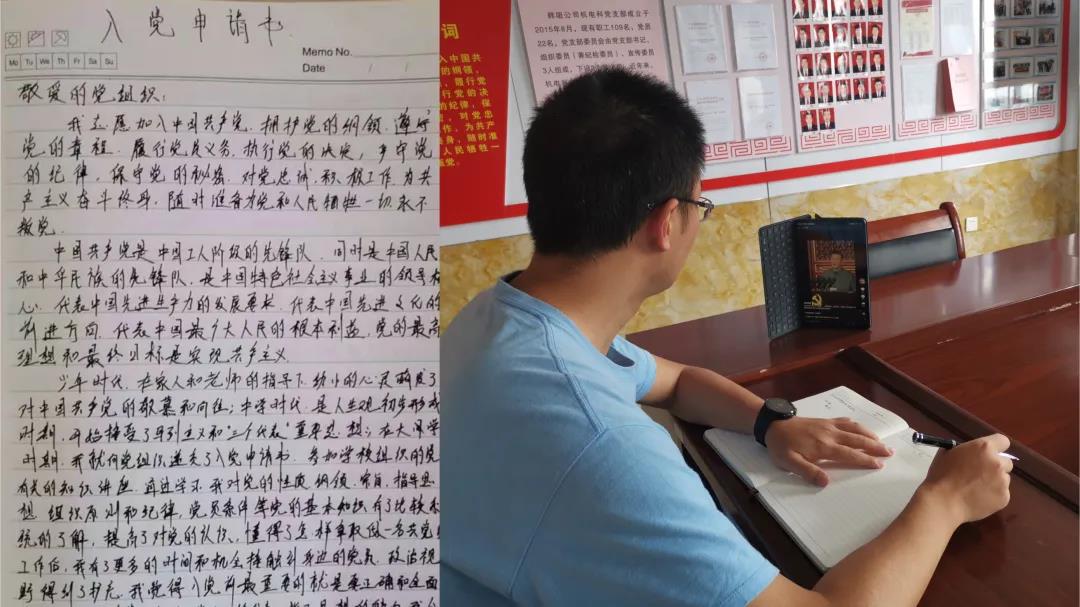 入党申请书
Memo No.
Mo Tu We Th Fr Sa Su
Date / /
敬爱的党组织：
我志愿加入中国共产党，拥护党的纲领，遵守
党的章程，履行党员义务，执行党的决定，严守党
的纪律，保守党的秘密，对党忠诚，积极工作，为共
产主义奋斗终身，随时准备为党和人民牺牲一切，永不
叛党。
中国共产党是中国工人阶级的先锋队，同时是中国人民
和中华民族的先锋队，是中国特色社会主义事业的领导核
心，代表中国先进生产力的发展要求，代表中国先进文化的
前进方向，代表中国最广大人民的根本利益。党的最高
理想和最终目标是实现共产主义。
少年时代，在家人和老师的指导下，幼小的心灵萌发了
对中国共产党的敬慕和向往；中学时代，是人生观初步形成
时期，开始接受了马列主义和“三个代表”重要思想；在大学
时期，我就向党组织递交了入党申请书，参加学校组织的党
有关的知识讲座，再进学习，我对党的性质、纲领、宗旨、指导思
想、组织原则和纪律、党员条件等党的基本知识有了比较系
统的了解，提高了对党的认识，懂得了怎样争取做一名共党
工作后，我有了更多的时间和机会接触到身边的党员，政治视
野得到了扩充。我觉得入党前最重要的就是要正确和全面
词
入中国共
的纲领，
履行党
行党的决
的纪律，保
，对党忠
作，为共产
身，随时准
人民牺牲一
叛党。
公司机电科党支部成立于
2015年8月，现有职工109名，党员
22名，党支部委员会由党支部书记、
组织委员（兼纪检委员）、宣传委员
3人组成，